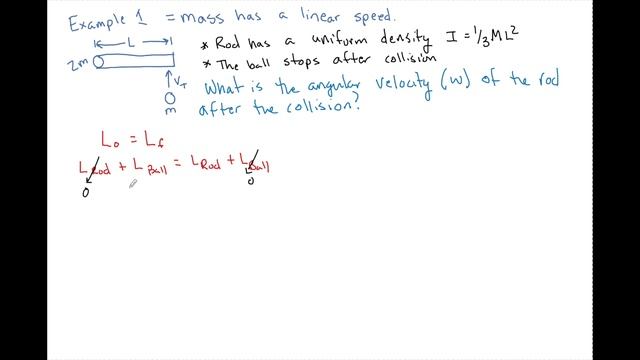 Example 1 = mass has a linear speed.
L
2m
V_T
m
* Rod has a uniform density I = 1/3 ML²
* The ball stops after collision
What is the angular velocity (w) of the rod
after the collision?
L₀ = L_f
L_Rod + L_Ball = L_Rod + L_Ball
0
0